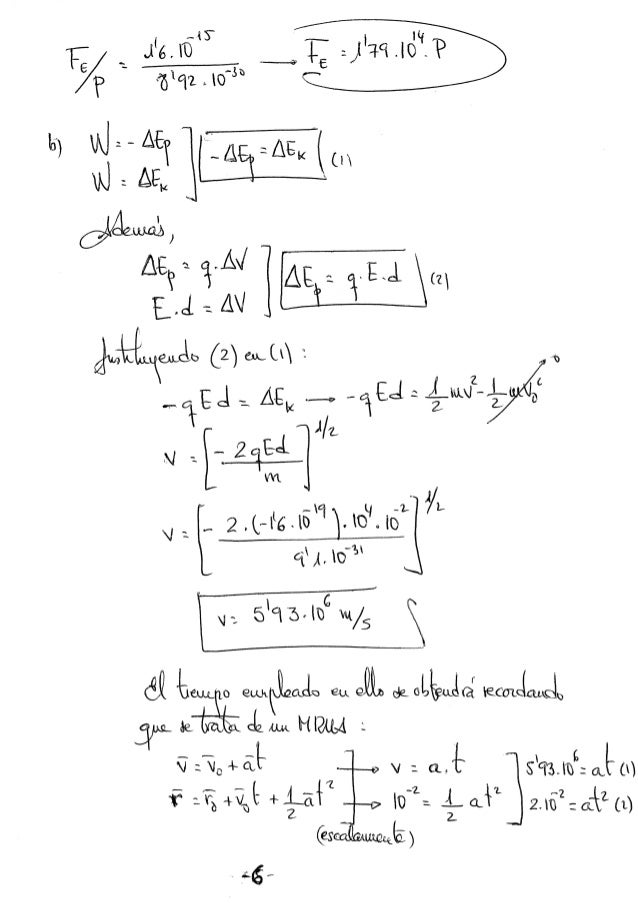 F_E/P = 1'6.10^-15 / 8'92.10^-30 → F_E = 1'79.10^14.P
b) W = -ΔEp
W = ΔEk
-ΔEp = ΔEk (1)
Además,
ΔEp = q.ΔV
E.d = ΔV
ΔEp = q.E.d (2)
Sustituyendo (2) en (1):
-qEd = ΔEk → -qEd = 1/2 mv² - 1/2 mv₀² 0
v = [- 2qEd / m]^1/2
v = [- 2.(-1'6.10^-19).10^4.10^-2 / 9'1.10^-31]^1/2
v = 5'93.10^6 m/s
El tiempo empleado en ello se obtendrá recordando
que se trata de un MRUA:
v̄ = v̄₀ + āt → v = a.t 5'93.10^6 = at (1)
r̄ = r̄₀ + v̄₀t + 1/2 āt² → 10^-2 = 1/2 at² 2.10^-2 = at² (2)
(escalarmente)
-6-